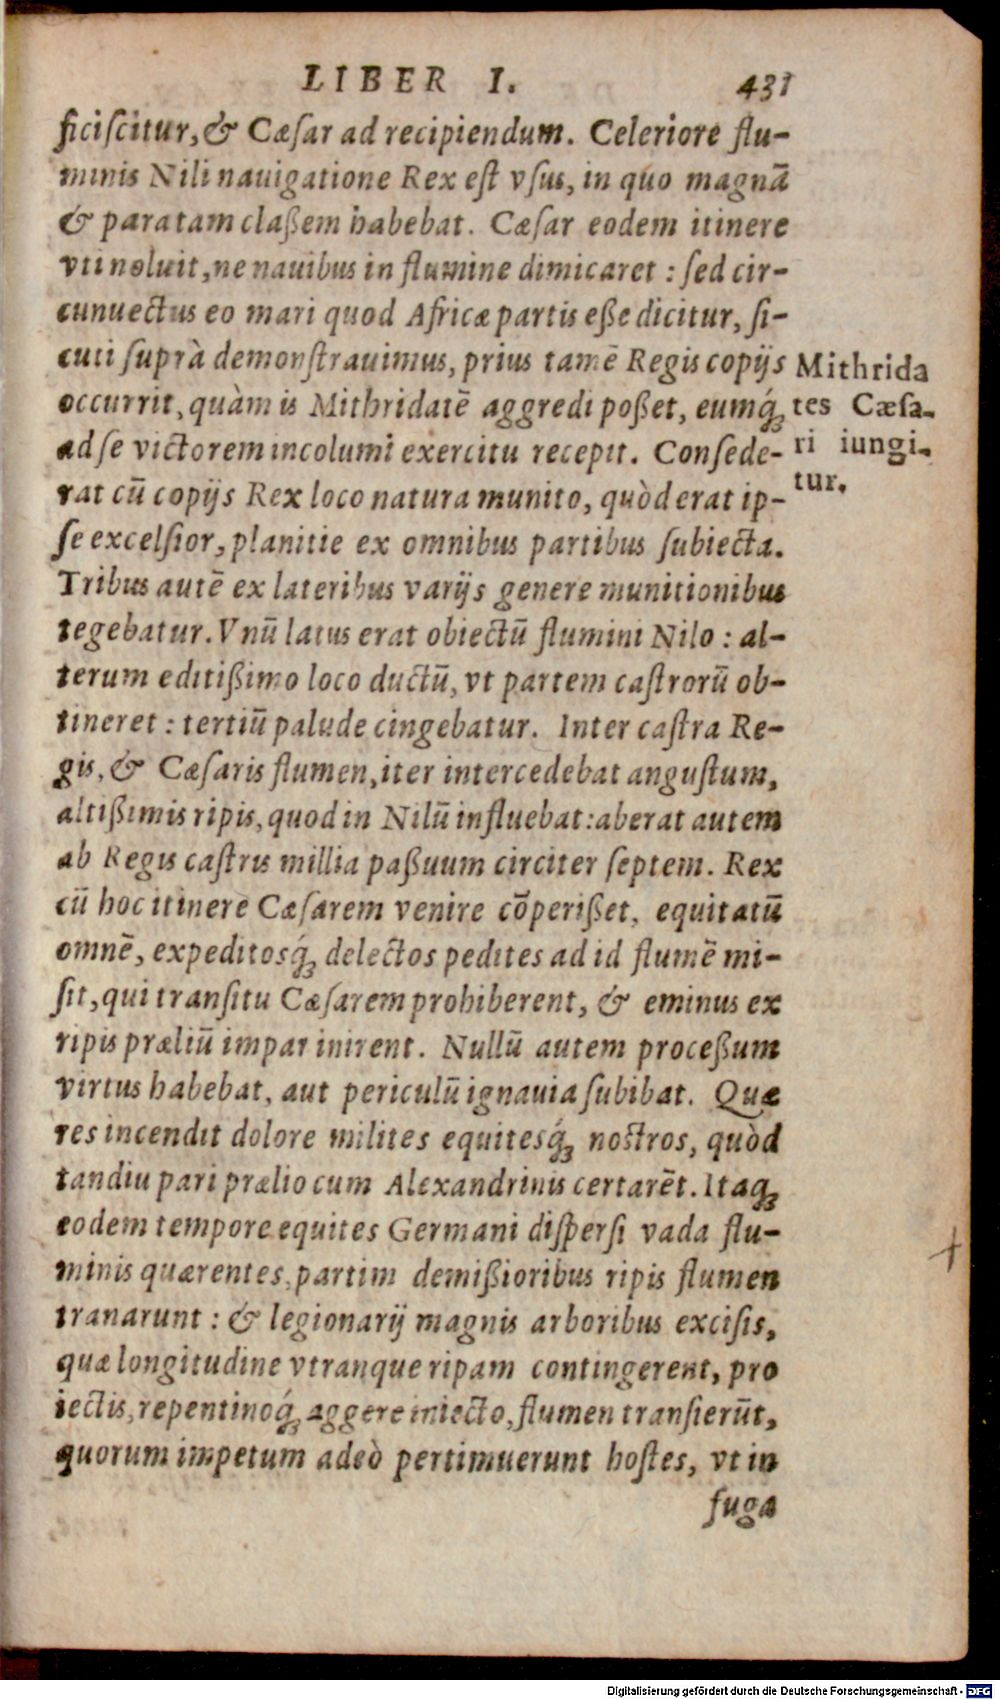 LIBER I. 431
ficiſcitur, & Cæſar ad recipiendum. Celeriore flu-
minis Nili nauigatione Rex eſt vſus, in quo magnā
& paratam claßem habebat. Cæſar eodem itinere
vti noluit, ne nauibus in flumine dimicaret : ſed cir-
cunuectus eo mari quod Africæ partis eße dicitur, ſi-
cuti ſuprà demonſtrauimus, prius tamē Regis copijs
occurrit, quàm is Mithridatē aggredi poßet, eumq́;
ad ſe victorem incolumi exercitu recepit. Conſede-
rat cū copijs Rex loco natura munito, quòd erat ip-
ſe excelſior, planitie ex omnibus partibus ſubiecta.
Tribus autē ex lateribus varijs genere munitionibus
tegebatur. Vnū latus erat obiectū flumini Nilo : al-
terum editißimo loco ductū, vt partem caſtrorū ob-
tineret : tertiū palude cingebatur. Inter caſtra Re-
gis, & Cæſaris flumen, iter intercedebat anguſtum,
altißimis ripis, quod in Nilū influebat: aberat autem
ab Regis caſtris millia paßuum circiter ſeptem. Rex
cū hoc itinere Cæſarem venire cōperißet, equitatū
omnē, expeditosq́; delectos pedites ad id flumē mi-
ſit, qui tranſitu Cæſarem prohiberent, & eminus ex
ripis præliū impar inirent. Nullū autem proceßum
virtus habebat, aut periculū ignauia ſubibat. Quæ
res incendit dolore milites equitesq́; noſtros, quòd
tandiu pari prælio cum Alexandrinis certarēt. Itaq;
eodem tempore equites Germani diſperſi vada flu-
minis quærentes, partim demißioribus ripis flumen
tranarunt : & legionarij magnis arboribus exciſis,
quæ longitudine vtranque ripam contingerent, pro
iectis, repentinoq́; aggere iniecto, flumen tranſierūt,
quorum impetum adeò pertimuerunt hoſtes, vt in
fuga
Mithrida
tes Cæſa-
ri iungi-
tur.
Digitalisierung gefördert durch die Deutsche Forschungsgemeinschaft - DFG